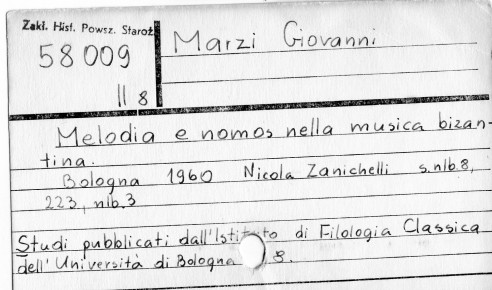 Zakł. Hist. Powsz. Staroż
58009
II 8
Marzi Giovanni
Melodia e nomos nella musica bizan-
tina.
Bologna 1960 Nicola Zanichelli s. nlb 8,
223, nlb. 3
Studi pubblicati dall'Istituto di Filologia Classica
dell'Università di Bologna 8.